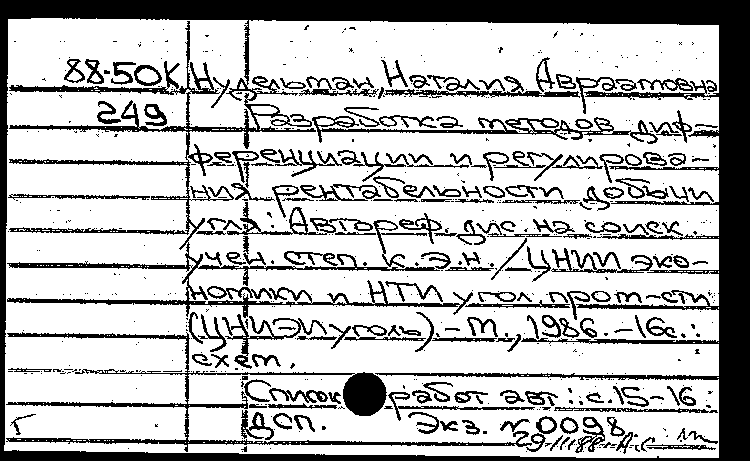 88-50К Нудельман, Наталия Авраамовна
249 Разработка методов диф-
ференциации и регулирова-
ния рентабельности добычи
угля: Автореф. дис. на соиск.
учен. степ. к.э.н. / ЦНИИ эко-
номики и НТИ угол. пром-сти
(ЦНИЭИуголь). - М., 1986. - 16с.:
схем.
Список работ авт.: с. 15-16.
ДСП. Экз. №0098
Г